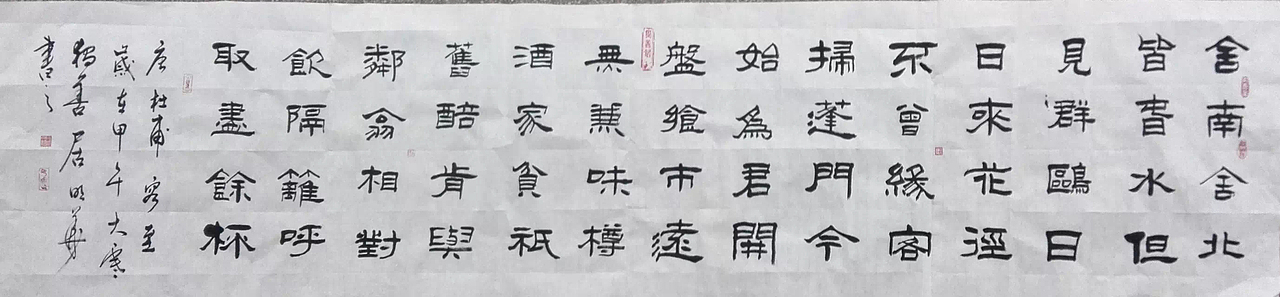 舍南舍北
皆春水但
見群鷗日
日來花徑
不曾緣客
掃蓬門今
始爲君開
盤飧市遠
無兼味樽
酒家貧祇
舊醅肯與
鄰翁相對
飲隔籬呼
取盡餘杯
唐杜甫 客至
歲在甲午大寒
獨善居明華
書之